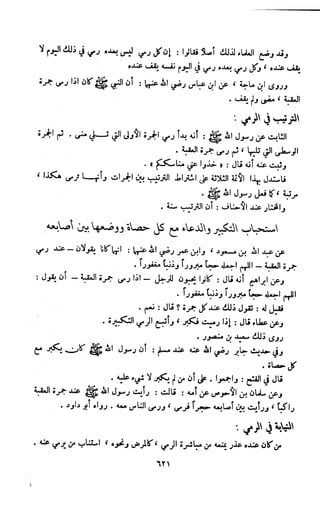 وقد وضع العلماء لذلك أصلاً فقالوا : إن كل رمي ليس بعده رمي في ذلك اليوم لا
يقف عنده ، وكل رمي بعده رمي في اليوم نفسه يقف عنده
وروى ابن ماجة ، عن ابن عباس رضي الله عنهما : أن النبي ﷺ كان إذا رمى جمرة
العقبة ، مضى ولم يقف .
الترتيب في الرمي :
الثابت عن رسول الله ﷺ : أنه بدأ رمي الجمرة الأولى التي تلي منى . ثم الجمرة
الوسطى التي تليها ، ثم رمى جمرة العقبة .
وثبت عنه أنه قال : « خذوا عني مناسككم » .
فاستدل بهذا الأئمة الثلاثة على اشتراط الترتيب بين الجمرات وأنها ترمى هكذا ،
مرتبة ، كما فعل رسول الله ﷺ .
والمختار عند الأحناف : أن الترتيب سنة .
استحباب التكبير والدعاء مع كل حصاة ووضعها بين أصابعه
عن عبد الله بن مسعود ، وابن عمر رضي الله عنهما : انهما كانا يقولان - عند رمي
جمرة العقبة - اللهم اجعله حجاً مبروراً وذنباً مغفوراً .
وعن ابراهيم أنه قال : كانوا يحبون للرجل - اذا رمى جمرة العقبة - أن يقول :
اللهم اجعله حجاً مبروراً وذنباً مغفوراً .
فقيل له : تقول ذلك عند كل جمرة ؟ قال : نعم .
وعن عطاء قال : إذا رميت فكبر ، وأتبع الرمي التكبيرة .
روى ذلك سعيد بن منصور .
وفي حديث جابر رضي الله عنه عند مسلم : أن رسول الله ﷺ كان يكبر مع
كل حصاة .
قال في الفتح : واجمعوا . على أن من لم يكبر لا شيء عليه .
وعن سلمان بن الأحوص عن أمه : قالت : رأيت رسول الله ﷺ عند جمرة العقبة
راكباً ، ورأيت بين أصابعه حجراً فرمى ، ورمى الناس معه . رواه أبو داود .
النيابة في الرمي :
من كان عنده عذر يمنعه من مباشرة الرمي ، كالمرض ونحوه ، استناب من يرمي عنه .
٦٢١